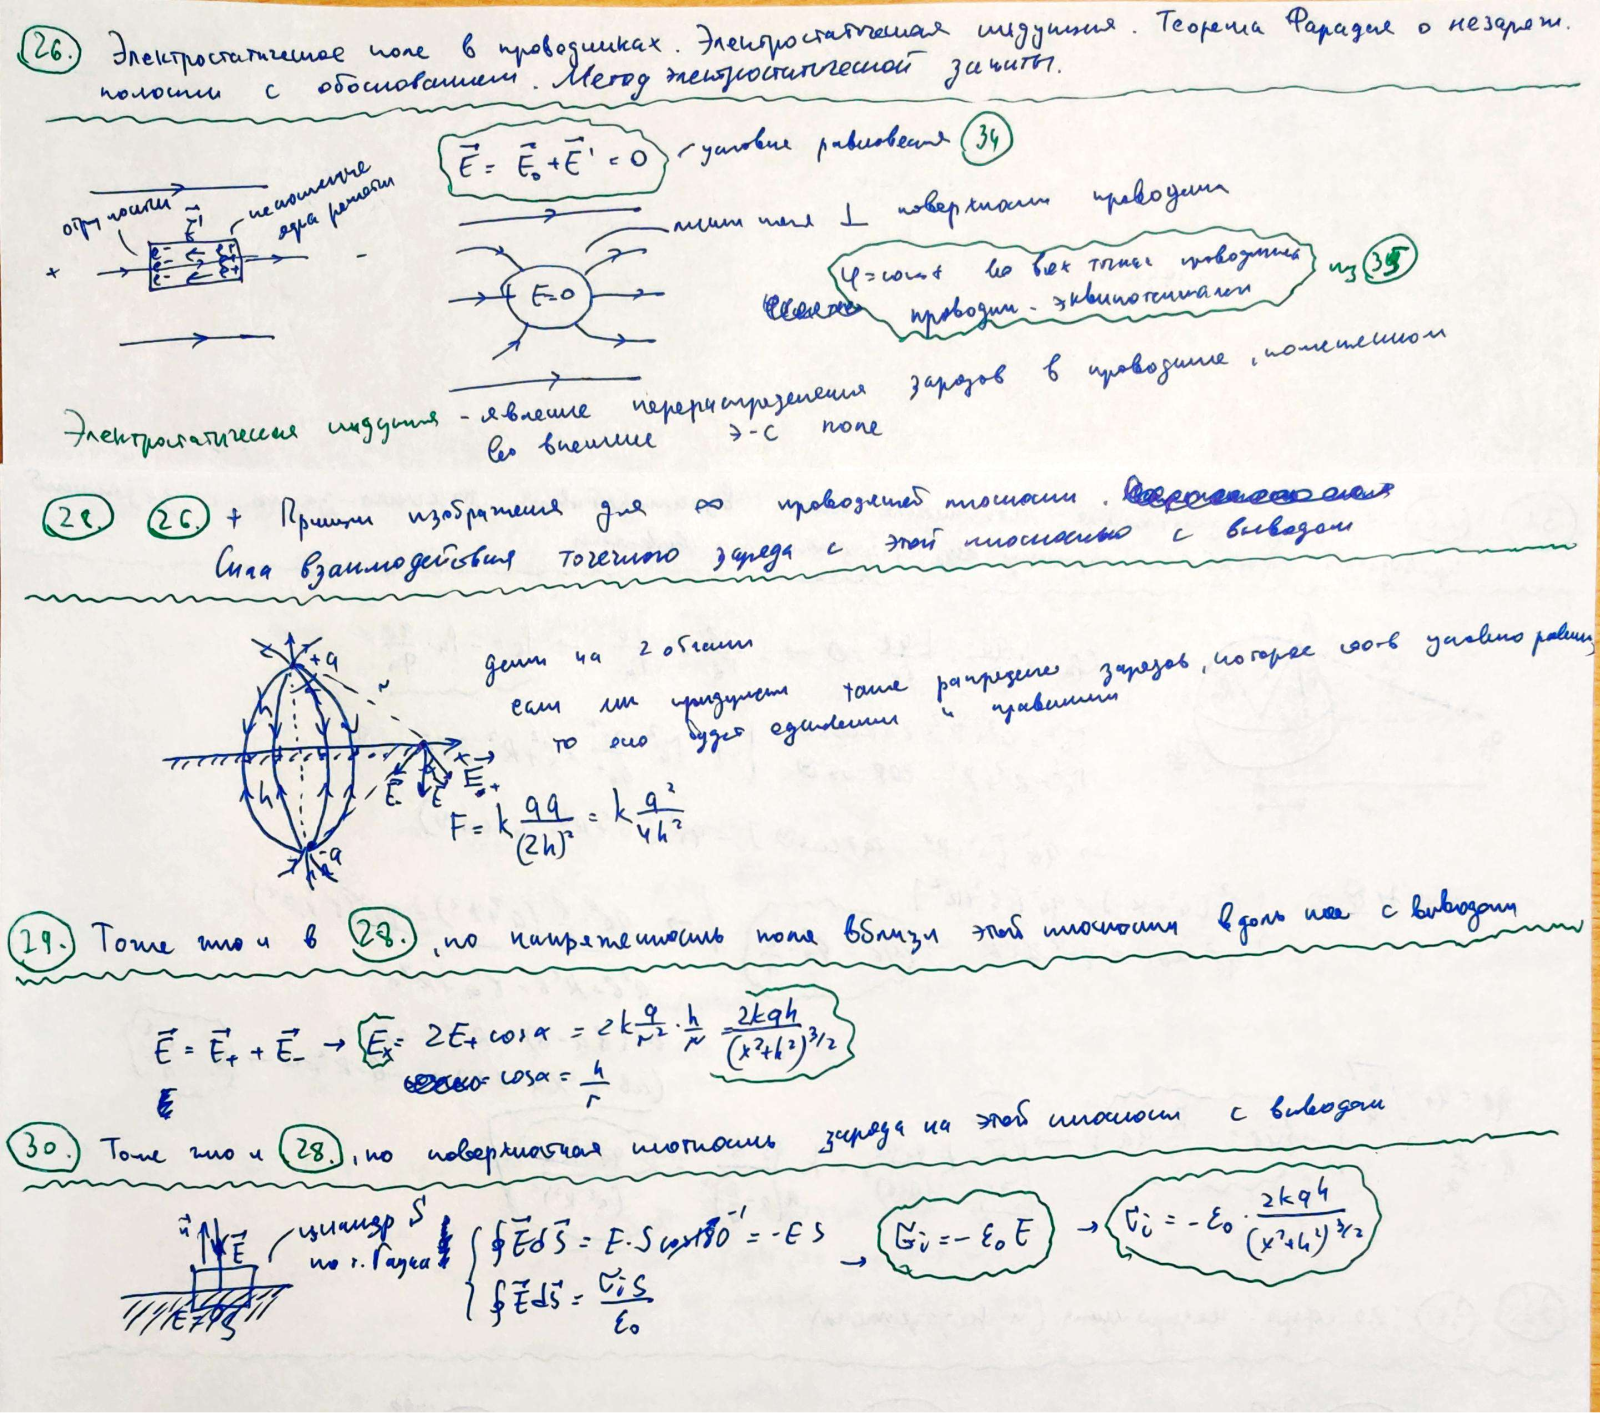 26. Электростатичесое поле в проводниках. Электростатическая индукция. Теорема Фарадея о незаряж.
полости с обоснованием. Метод электростатической защиты.
E⃗ = E⃗₀ + E⃗' = 0 условие равновесия 34
E⃗'
e- e+
+ -
линии поля ⊥ поверхности проводника
E=0
φ=const во всех точках проводника из 35
проводник - эквипотенциален
Электростатическая индукция - явление перераспределения зарядов в проводнике, помещенном
во внешнее э-с поле
28. 26. + Принцип изображения для ∞ проводящей плоскости.
Сила взаимодействия точечного заряда с этой плоскостью с выводом
делим на 2 области
если мы придумаем такое распределение зарядов, которое соотв условию равнов
то оно будет единственным и правильным
+q
r
h
x
E⃗₋ E⃗ E⃗₊
h
-q
F = k qq/(2h)² = k q²/4h²
29. Тоже что и в 28., но напряженность поля вблизи этой плоскости вдоль нее с выводом
E⃗ = E⃗₊ + E⃗₋ → Eₓ = 2E₊ cosα = 2k q/r² · h/r = 2kqh/(x²+h²)^3/2
cosα = h/r
30. Тоже что и 28., но поверхностная плотность заряда на этой плоскости с выводом
n⃗ E⃗
цилиндр S
по т. Гаусса
E=0 S
∮E⃗dS⃗ = E·S cos180⁻¹ = -ES
∮E⃗dS⃗ = σᵢS/ε₀
→ σᵢ = -ε₀E → σᵢ = -ε₀ · 2kqh/(x²+h²)^3/2